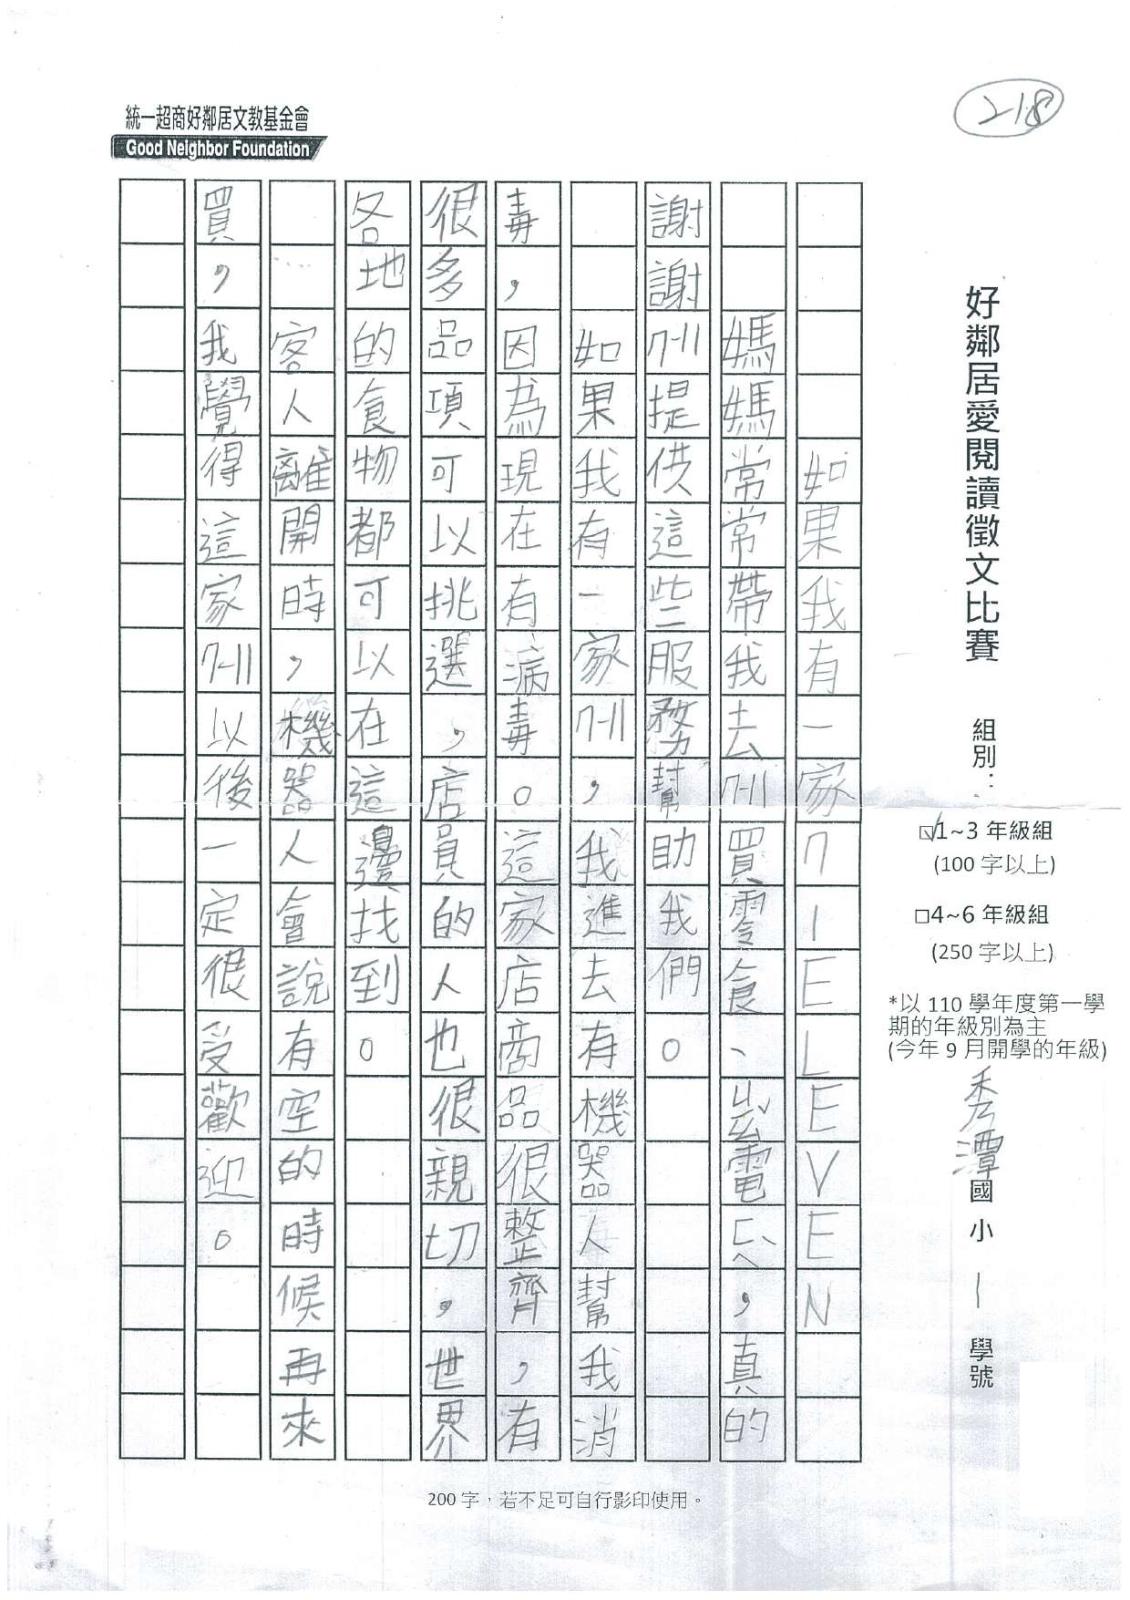 統一超商好鄰居文教基金會
Good Neighbor Foundation
218
好鄰居愛閱讀徵文比賽 組別：
☑1~3 年級組
(100 字以上)
□4~6 年級組
(250 字以上)
*以 110 學年度第一學
期的年級別為主
(今年 9 月開學的年級)
秀潭國小 — 學號
如果我有一家7-ELEVEN
媽媽常常帶我去7-11買零食、電，真的
謝謝7-11提供這些服務幫助我們。
如果我有一家7-11，我進去有機器人幫我消
毒，因為現在有病毒。這家店商品很整齊，有
很多品項可以挑選，店員的人也很親切，世界
各地的食物都可以在這邊找到。
客人離開時，機器人會說有空的時候再來
買，我覺得這家7-11以後一定很受歡迎。
200 字，若不足可自行影印使用。